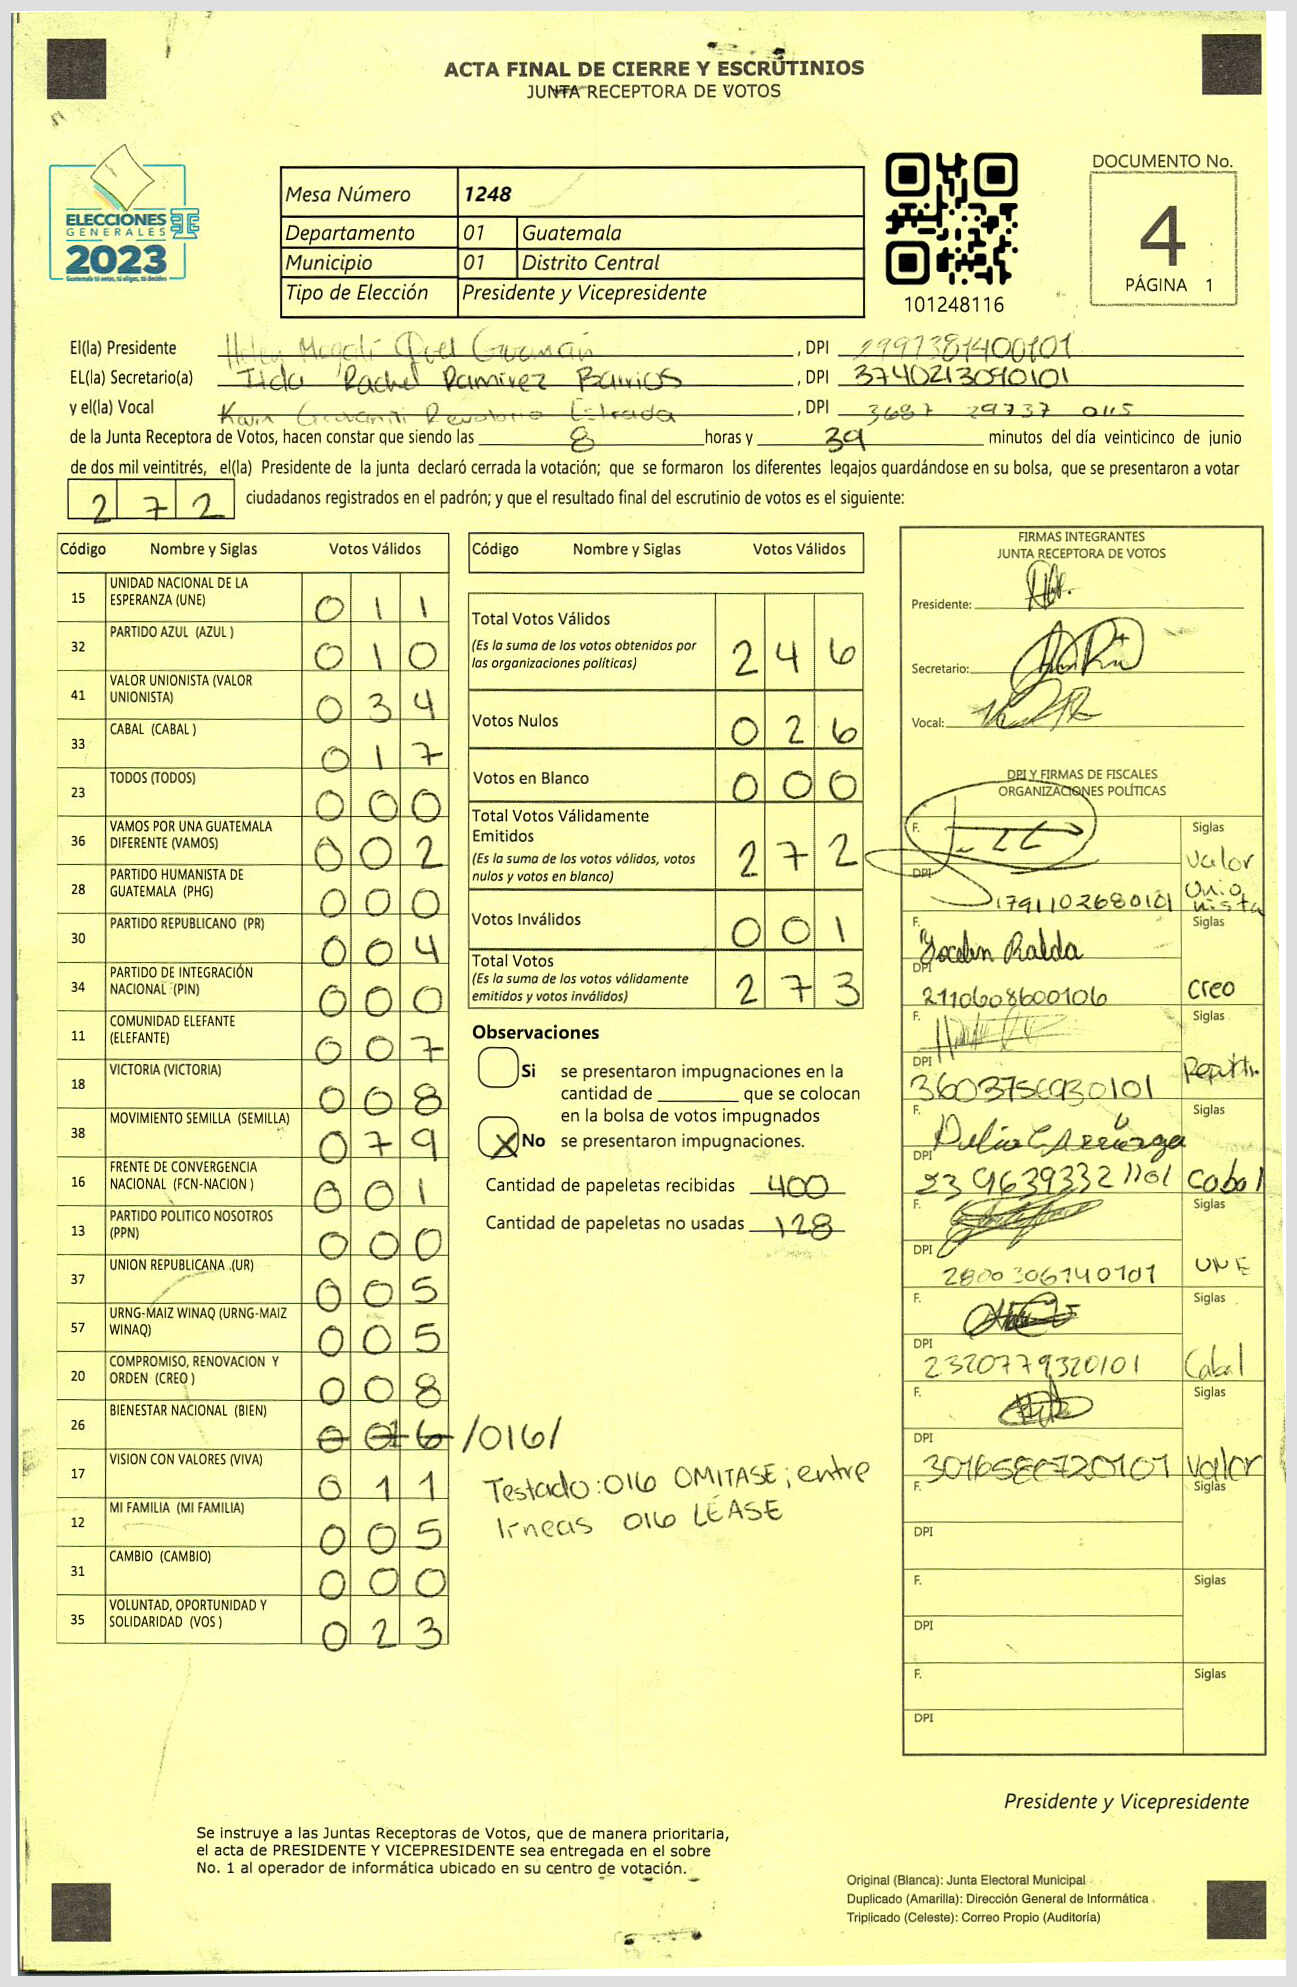 ACTA FINAL DE CIERRE Y ESCRUTINIOS
JUNTA RECEPTORA DE VOTOS
ELECCIONES
GENERALES
2023
Mesa Número 1248
Departamento 01 Guatemala
Municipio 01 Distrito Central
Tipo de Elección Presidente y Vicepresidente
101248116
DOCUMENTO No.
4
PÁGINA 1
El(la) Presidente , DPI
EL(la) Secretario(a) Ilda Rachel Ramirez Barrios , DPI 3740213090101
y el(la) Vocal Estrada , DPI 3687 29737 0115
de la Junta Receptora de Votos, hacen constar que siendo las 8 horas y 39 minutos del día veinticinco de junio
de dos mil veintitrés, el(la) Presidente de la junta declaró cerrada la votación; que se formaron los diferentes legajos guardándose en su bolsa, que se presentaron a votar
272 ciudadanos registrados en el padrón; y que el resultado final del escrutinio de votos es el siguiente:
Código Nombre y Siglas Votos Válidos
15 UNIDAD NACIONAL DE LA ESPERANZA (UNE) 011
32 PARTIDO AZUL (AZUL ) 010
41 VALOR UNIONISTA (VALOR UNIONISTA) 034
33 CABAL (CABAL ) 017
23 TODOS (TODOS) 000
36 VAMOS POR UNA GUATEMALA DIFERENTE (VAMOS) 002
28 PARTIDO HUMANISTA DE GUATEMALA (PHG) 000
30 PARTIDO REPUBLICANO (PR) 004
34 PARTIDO DE INTEGRACIÓN NACIONAL (PIN) 000
11 COMUNIDAD ELEFANTE (ELEFANTE) 007
18 VICTORIA (VICTORIA) 008
38 MOVIMIENTO SEMILLA (SEMILLA) 079
16 FRENTE DE CONVERGENCIA NACIONAL (FCN-NACION ) 001
13 PARTIDO POLITICO NOSOTROS (PPN) 000
37 UNION REPUBLICANA (UR) 005
57 URNG-MAIZ WINAQ (URNG-MAIZ WINAQ) 005
20 COMPROMISO, RENOVACION Y ORDEN (CREO ) 008
26 BIENESTAR NACIONAL (BIEN) 016 /016/
17 VISION CON VALORES (VIVA) 011
12 MI FAMILIA (MI FAMILIA) 005
31 CAMBIO (CAMBIO) 000
35 VOLUNTAD, OPORTUNIDAD Y SOLIDARIDAD (VOS ) 023
Código Nombre y Siglas Votos Válidos
Total Votos Válidos 246
(Es la suma de los votos obtenidos por
las organizaciones políticas)
Votos Nulos 026
Votos en Blanco 000
Total Votos Válidamente
Emitidos 272
(Es la suma de los votos válidos, votos
nulos y votos en blanco)
Votos Inválidos 001
Total Votos 273
(Es la suma de los votos válidamente
emitidos y votos inválidos)
Observaciones
Si se presentaron impugnaciones en la
cantidad de ________ que se colocan
en la bolsa de votos impugnados
X No se presentaron impugnaciones.
Cantidad de papeletas recibidas 400
Cantidad de papeletas no usadas 128
Testado: 016 OMITASE; entre
lineas 016 LÉASE
FIRMAS INTEGRANTES
JUNTA RECEPTORA DE VOTOS
Presidente:
Secretario:
Vocal:
DPI Y FIRMAS DE FISCALES
ORGANIZACIONES POLÍTICAS
F. Siglas
Valor
Unio
nista
DPI 1791102680101
F. Jocelin Ralda Siglas
DPI 2110608600106 Creo
F. Siglas
DPI
F. Siglas
DPI 23 9639332 1101 Cabal
F. Siglas
DPI 2800306140101 UNE
F. Siglas
DPI 2320779320101 Cabal
F. Siglas
DPI Valor
F. Siglas
DPI
F. Siglas
DPI
F. Siglas
DPI
Presidente y Vicepresidente
Se instruye a las Juntas Receptoras de Votos, que de manera prioritaria,
el acta de PRESIDENTE Y VICEPRESIDENTE sea entregada en el sobre
No. 1 al operador de informática ubicado en su centro de votación.
Original (Blanca): Junta Electoral Municipal
Duplicado (Amarilla): Dirección General de Informática
Triplicado (Celeste): Correo Propio (Auditoría)